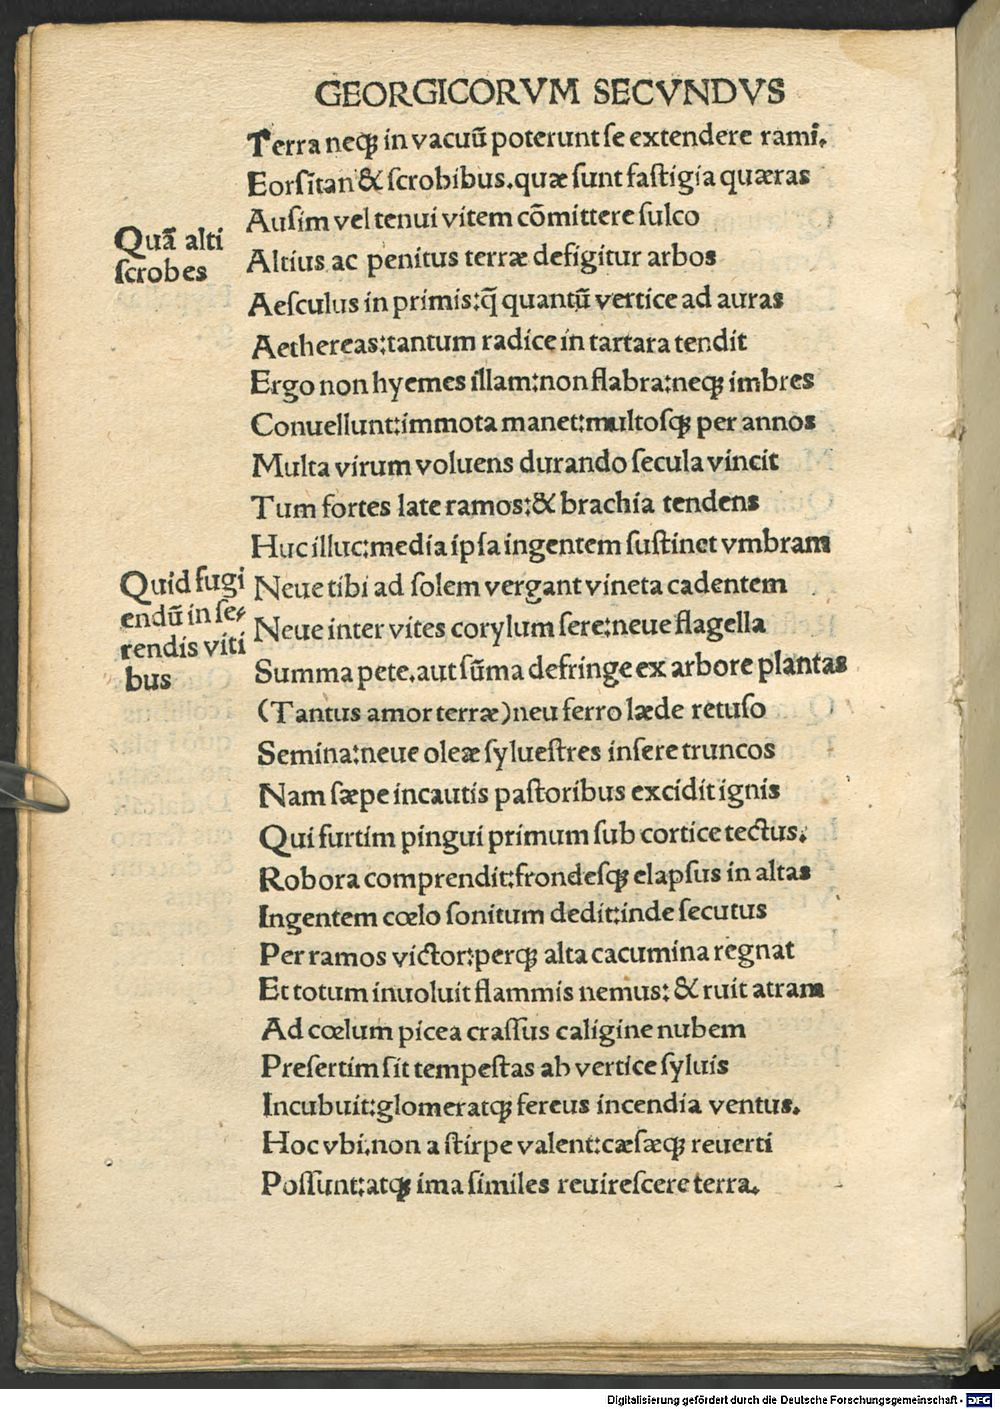 GEORGICORVM SECVNDVS
Terra neqꝫ in vacuū poterunt ſe extendere rami.
Eorſitan & ſcrobibus.quæ ſunt faſtigia quæras
Auſim vel tenui vitem cōmittere ſulco
Quā alti
ſcrobes
Altius ac penitus terræ defigitur arbos
Aeſculus in primis:q̄ quantū vertice ad auras
Aethereas:tantum radice in tartara tendit
Ergo non hyemes illam:non flabra:neqꝫ imbres
Conuellunt:immota manet:multoſqꝫ per annos
Multa virum voluens durando ſecula vincit
Tum fortes late ramos:& brachia tendens
Huc illuc:media ipſa ingentem ſuſtinet vmbram
Quid fugi
endū in ſe⸗
rendis viti
bus
Neue tibi ad ſolem vergant vineta cadentem
Neue inter vites corylum ſere:neue flagella
Summa pete.aut ſūma defringe ex arbore plantas
(Tantus amor terræ)neu ferro læde retuſo
Semina:neue oleæ ſylueſtres inſere truncos
Nam ſæpe incautis paſtoribus excidit ignis
Qui furtim pingui primum ſub cortice tectus.
Robora comprendit:frondeſqꝫ elapſus in altas
Ingentem cœlo ſonitum dedit:inde ſecutus
Per ramos victor:perqꝫ alta cacumina regnat
Et totum inuoluit flammis nemus: & ruit atram
Ad cœlum picea craſſus caligine nubem
Preſertim ſit tempeſtas ab vertice ſyluis
Incubuit:glomeratqꝫ fereus incendia ventus.
Hoc vbi.non a ſtirpe valent:cæſæqꝫ reuerti
Poſſunt:atqꝫ ima similes reuireſcere terra.
Digitalisierung gefördert durch die Deutsche Forschungsgemeinschaft - DFG